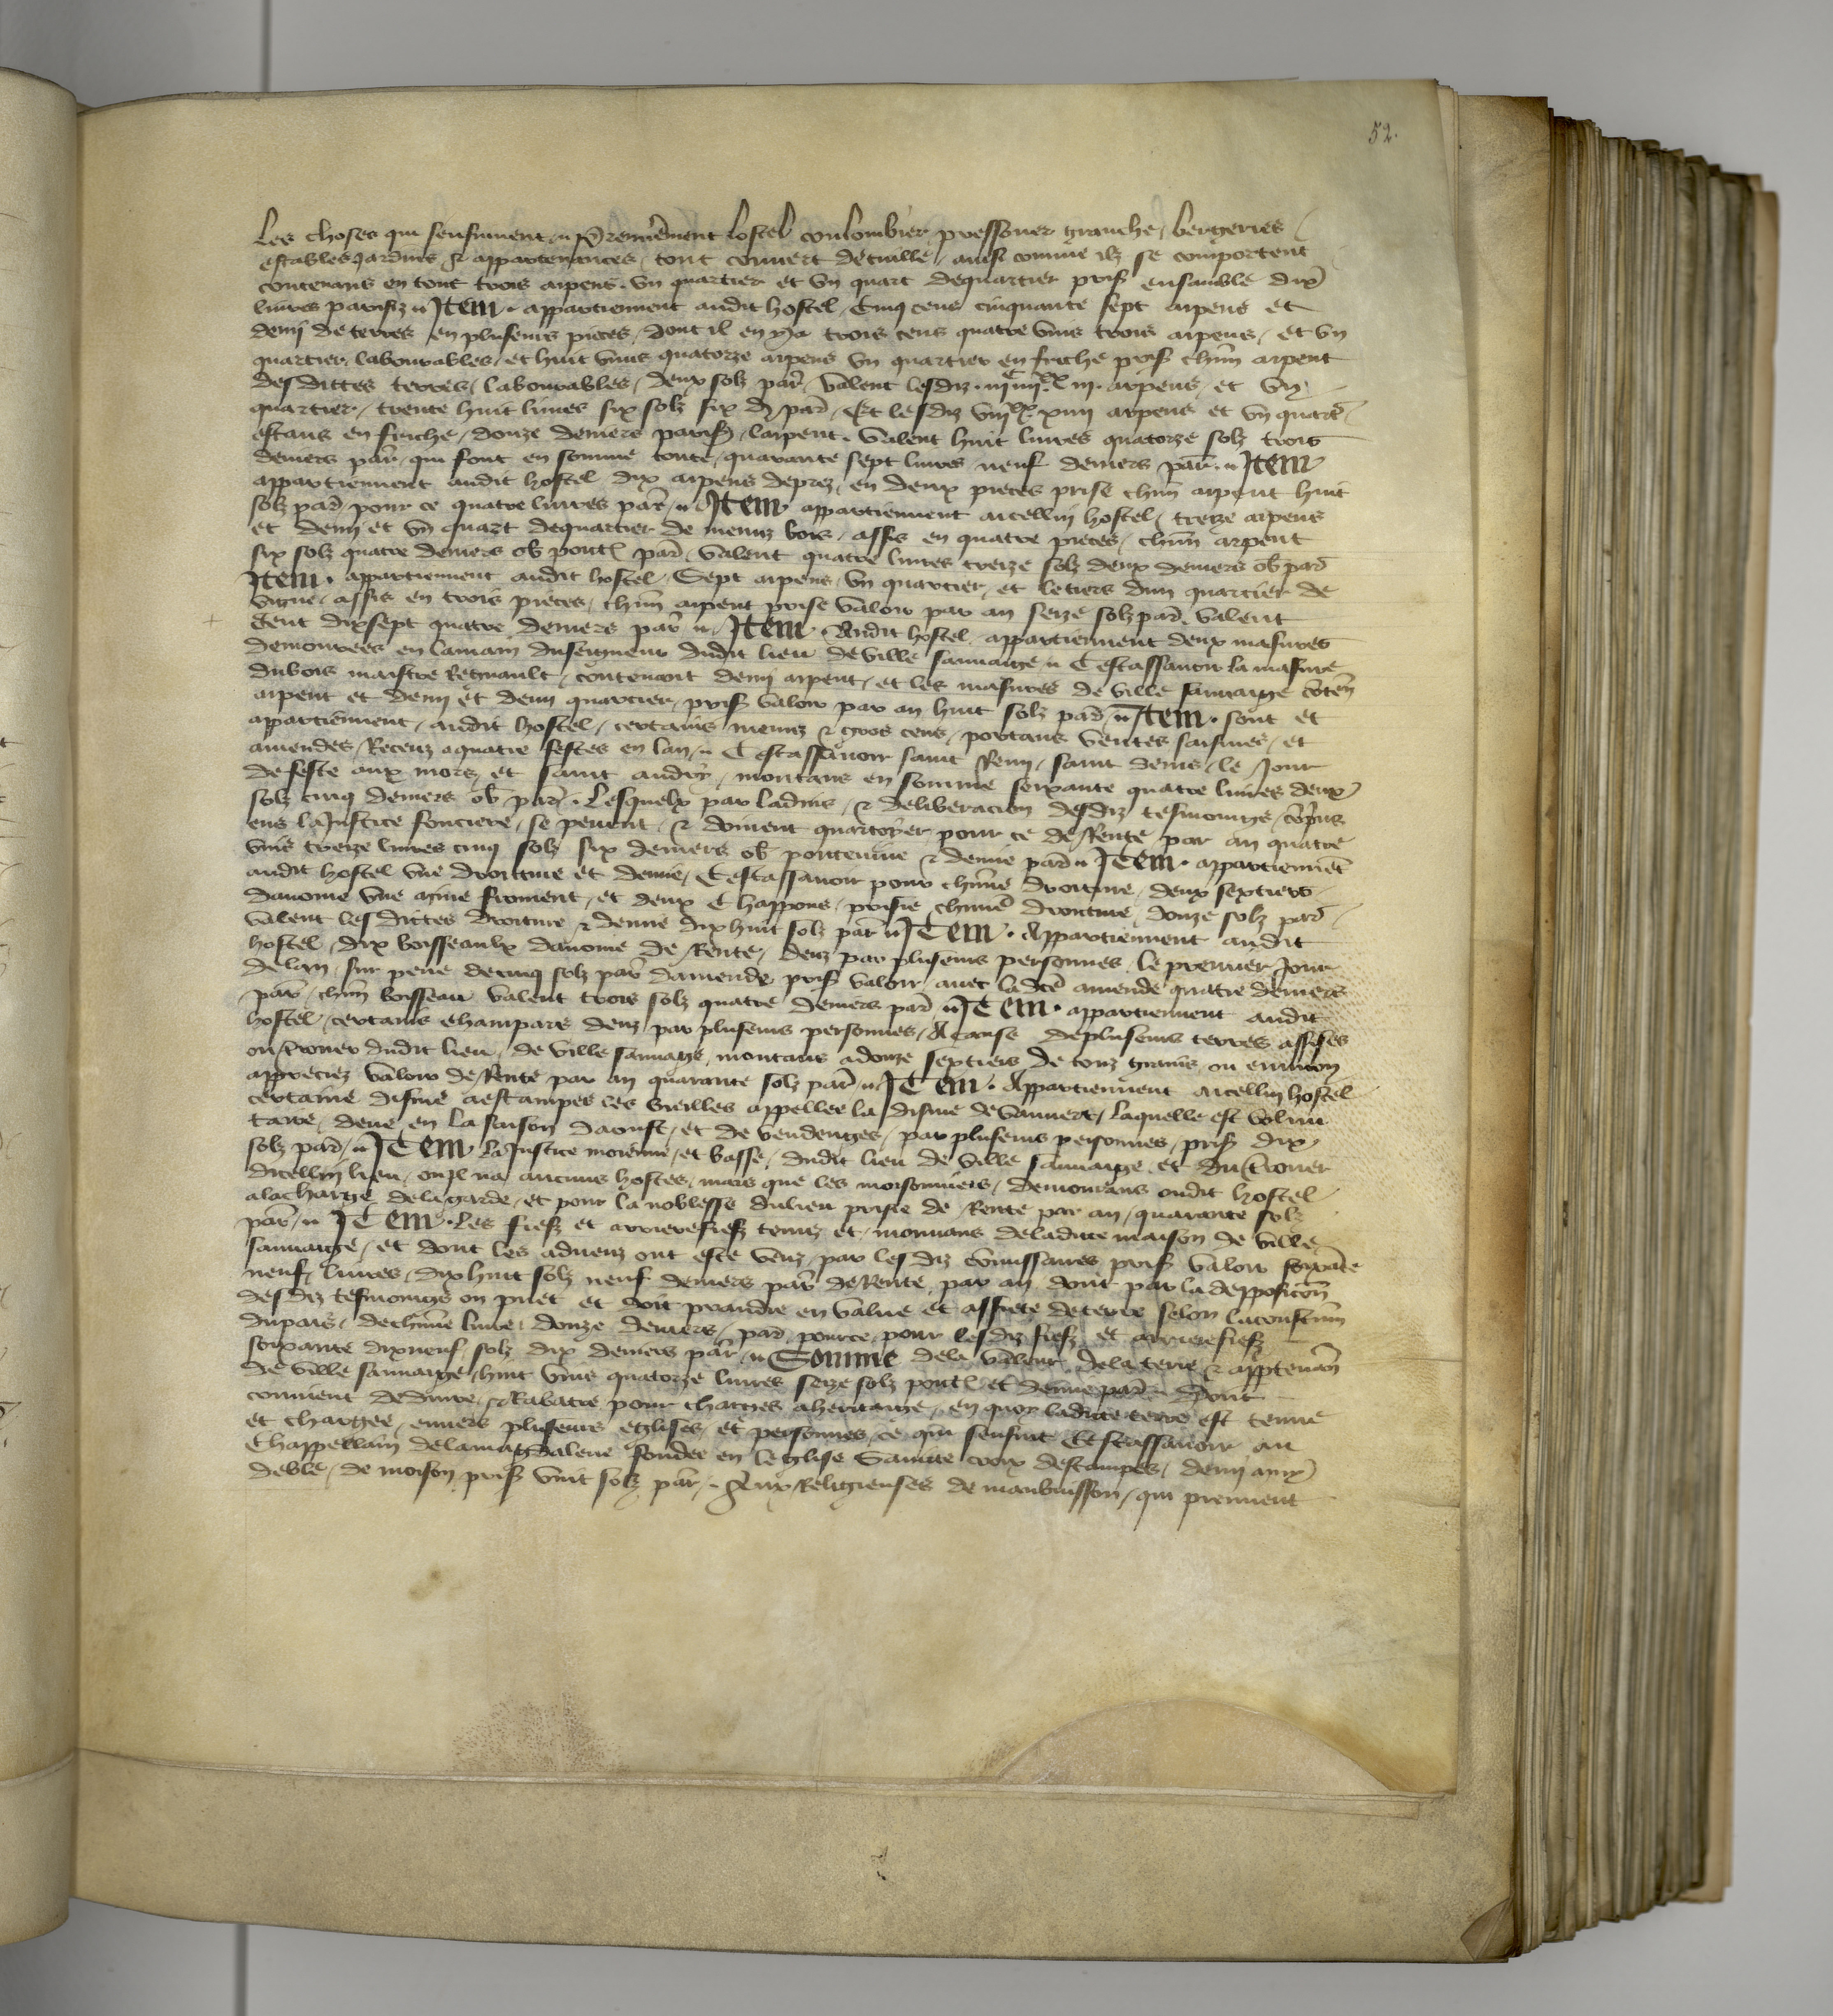 52.
Les choses qui sensuiuent. Premieremẽt lostel coulombier, pressouer granche, bergeries
estables jardins & appartenances, tout couuert de tuille, ainsi comme ilz se comportent
contenans en tout trois arpens. vn quartier et vn quart dequartier prisẽ ensamble dix
liures parisiz Item. appartiennent audit hostel, Cinq cens cinquante sept arpens et
demi de terres en pluseurs pieces, dont il en ya trois cens quatre vins trois arpens, et vn
quartier, labourables, et huit vins quatorze arpens vn quartier en friche prisẽ chũn arpent
desdittes terres, labourables, deux solz par̃ valent lesdiz .iijᶜiiijˣˣiij. arpens, et vn
quartier, trente huit liures six solz six d̃ par̃, Et lesdiz viijˣˣ xiiij arpens et vn quart̃
estans en friche, douze deniers parisẽ, larpent. valent huit liures quatorze solz trois
deniers par̃, qui font en somme toute, quarante sept liures neuf deniers par̃. Item
appartiennent audit hostel dix arpens deprez, en deux pieces prise chũn arpent huit
solz par̃ pour ce quatre liures par̃. Item appartiennent aicellui hostel, treize arpens
et demi et vn quart dequartier de menuz bois, assis en quatre pieces, chũn arpent
six solz quatre deniers ob̃ poit̃ par̃. valent quatre liures treize solz deux deniers ob̃ par̃
Item. appartiennent audit hostel. Sept arpens, vn quartier, et letiers dun quartier de
vigne, assis en trois pieces, chũn arpent prise valoir par an seize solz par̃. valent
Cent dixsept quatre deniers par̃. Item. Audit hostel appartiennent deux masures
demourees en lamain duseigneur dudit lieu de ville sauuaige. Cestassauoir la masure
dubois maistre Regnault, contenant demi arpent, et les masures de ville sauuaige cõteñ
arpent et demi et demi quartier, prisẽ valoir par an huit solz par̃. Item. sont et
appartiennent, audit hostel, certains menuz & gros cens, portans ventes saisines, et
amendes, Receuz aquatre festes en lan. Cestassauoir saint Remy, saint denis, le jour
defeste aux mors, et saint andry, montans en somme soixante quatre liures deux
solz cinq deniers ob̃ par̃. Lesquelx par laduis, & deliberacion desdiz tesmoings, cõpris
ens lajustice fonciere, se peuent, & doiuent quartoyer, pour ce de Rente par an quatre
vins treize liures cinq solz six deniers ob̃ poiteuine & demie par̃. Item. appartiennẽt
audit hostel vne droiture et demie, Cestassauoir pour chũne droiture, deux sextiers
dauoine vne mine froment, et deux Chappons, prisie chũne droiture, douze solz par̃
valent lesdittes droiture & demie dix huit solz par̃ Item. Appartiennent audit
hostel, dix boisseaulx dauoine de Rente, deuz par pluseurs personnes, le premier jour
delan, sur peine decinq solz par̃ damende, prisẽ valoir, auec ladc̃e amende quatre deniers
par̃, chũn boisseau, valent trois solz quatre deniers par̃. Item. appartiennent audit
hostel, certains champars deuz par pluseurs personnes, Acause depluseurs terres assises
ou terroer dudit lieu, de ville sauuaige, montans adouze sextiers de touz grains, ou enuiron
appreciez valoir de Rente par an quarante solz par̃. Item. Appartiennent aicellui hostel
certaine disme aestampes les vieilles appellee la disme de vauuert, Laquelle est volun
taire, deue en la saison daoust, et de vendenges, par pluseurs personnes, prisẽ dix
solz par̃. Item Lajustice moienne, et basse, dudit lieu de ville sauuaige, et du terroer
dicellui lieu, ouql na aucuns hostes, mais que les moisonniers, demourans oudit hostel
alacharge delagarde, et pour la noblesse dulieu prisie de Rente par an, quarante solz
par̃. Item. Les fiefz et arrierefiefz tenuz et mouuans deladitte maison de ville
sauuaige, et dont les adueuz ont este veuz, par lesdiz cõmissaires prisẽ valoir soixãte
neuf, liures, dix huit solz neuf deniers par̃ deRente, par an dont par la depposicõn
desdiz tesmoings on puet et doit prandre en value et assiete deterre selon lacoustum̃
dupais, dechũne liure, douze deniers, par̃, pource, pour lesdiz fiefz et arrierefiefz
soixante dixneuf solz dix deniers par̃. Somme dela valeur dela terre & apptenan̄
de ville sauuaige, huit vins quatorze liures seize solz poit̃ et demie par̃. Dont
conuient deduire, & Rabatre pour charges aheritaige, en quoy laditte terre est tenue
et chargee, enuers pluseurs eglises, et personnes, ce qui sensuit Cestassauoir au
Chappellain delamagdalene fondee en leglise Saincte croix destampes, demi muy
deblé, de moison prisẽ vint solz par̃. Aux Religieuses de maubuisson, qui prennent